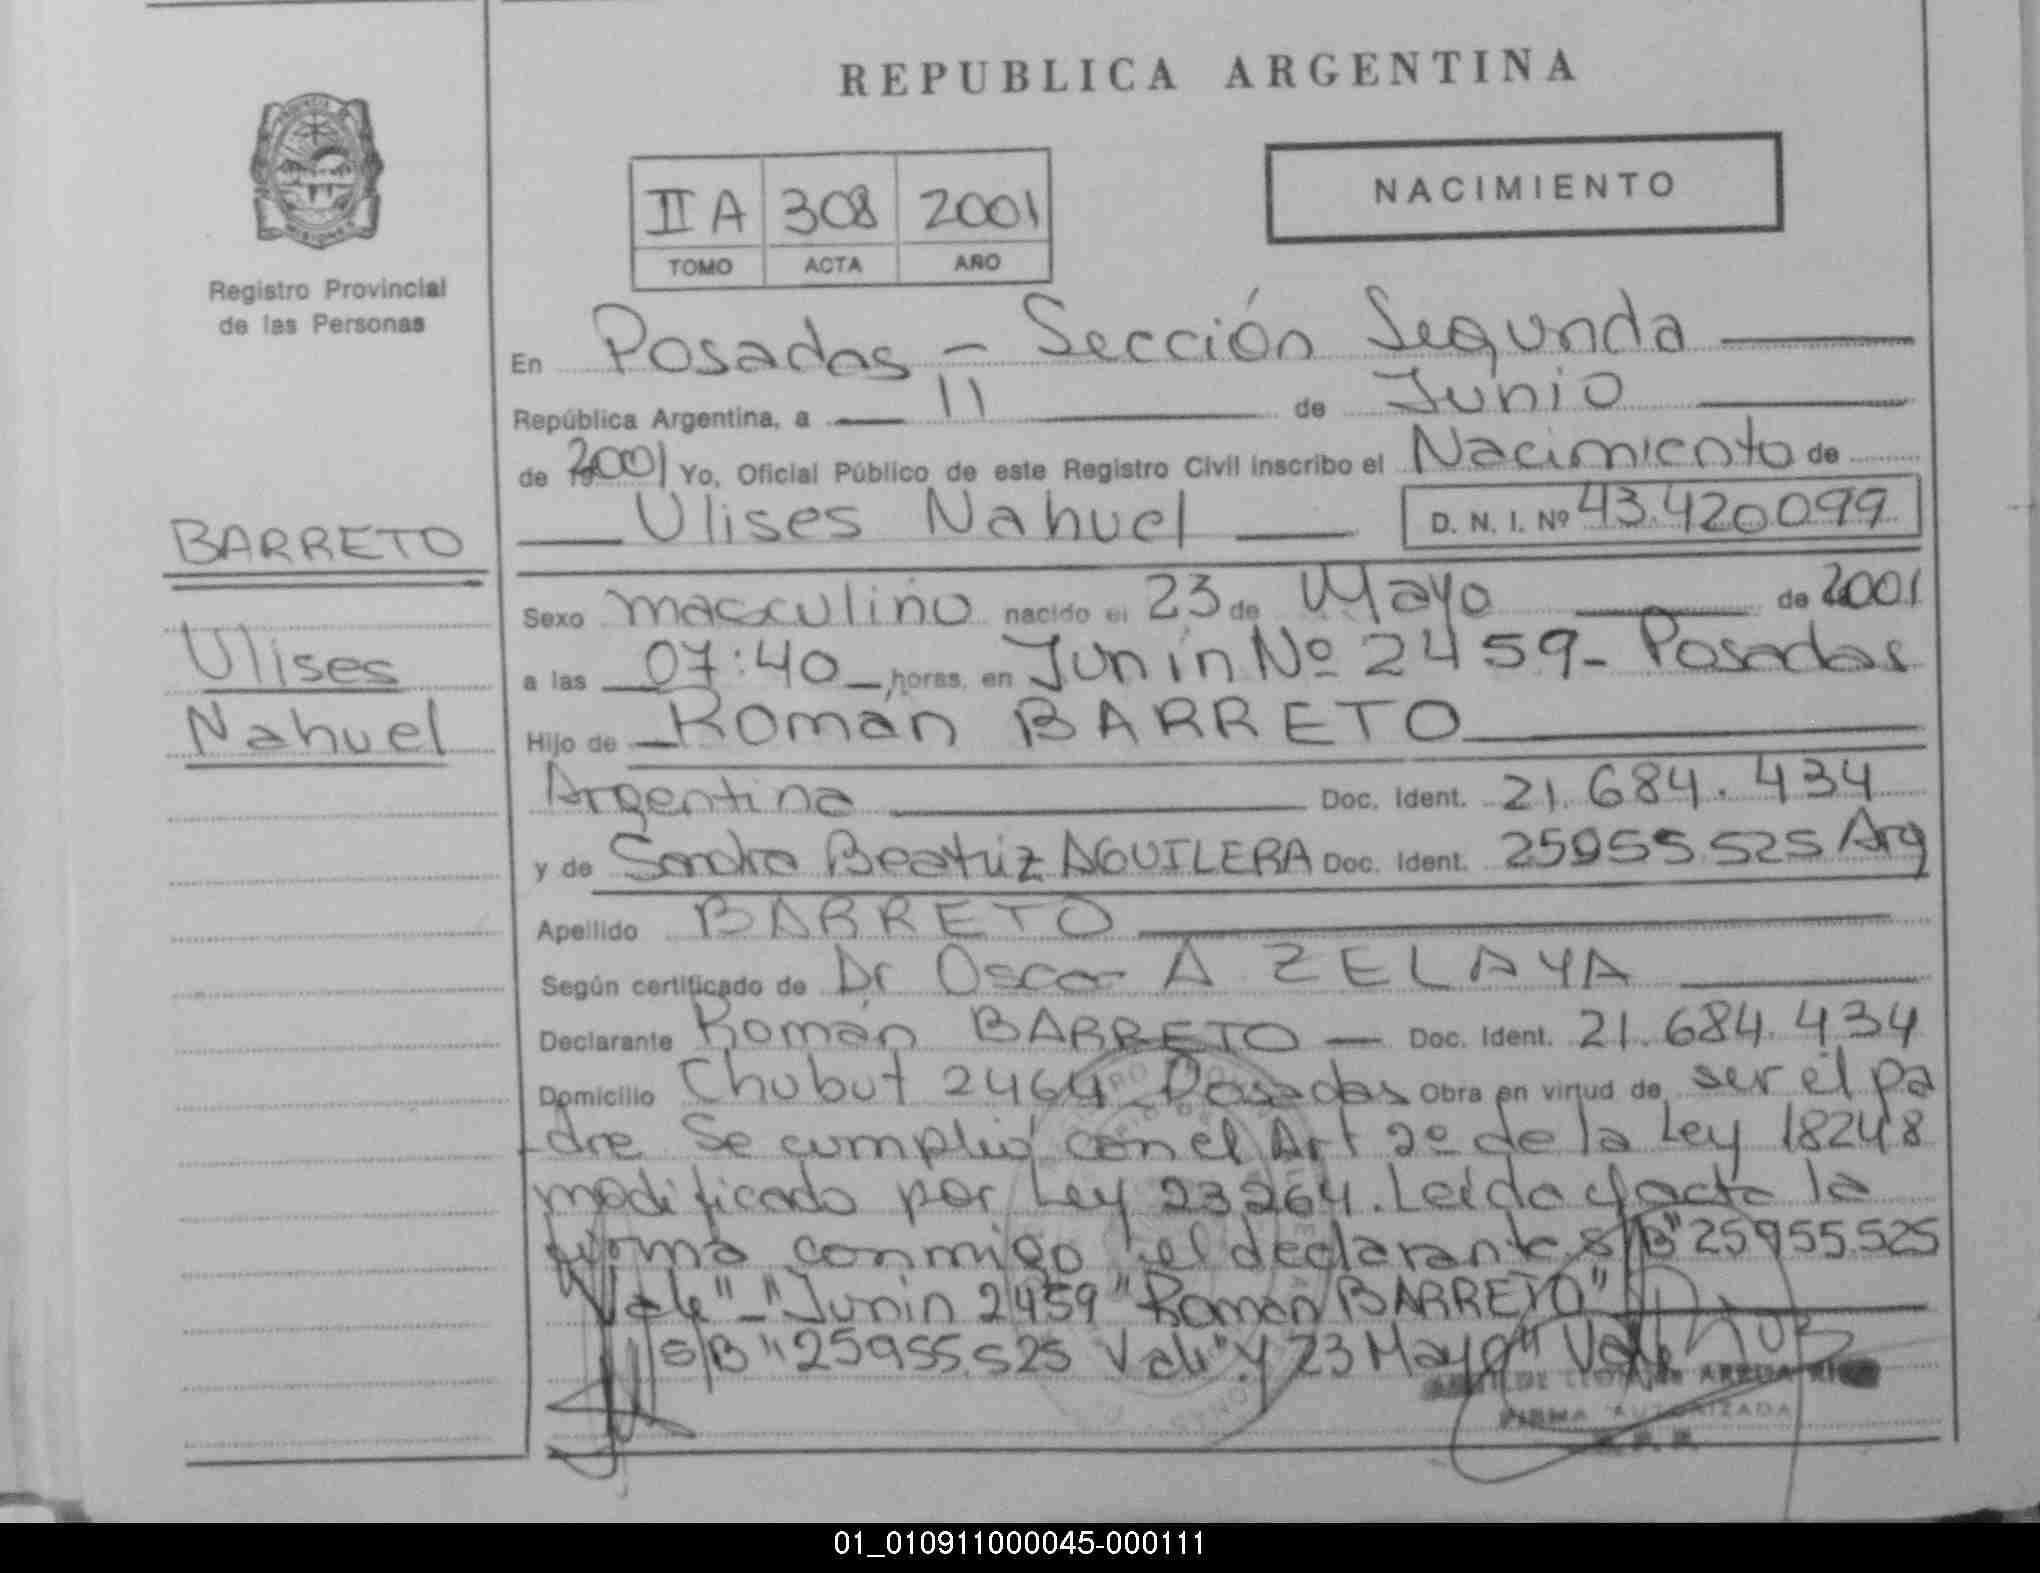 REPUBLICA ARGENTINA
NACIMIENTO
II A 308 2001
TOMO ACTA AÑO
Registro Provincial
de las Personas
BARRETO
Ulises
Nahuel
En Posadas - Sección Segunda
República Argentina, a 11 de Junio
de 2001 Yo, Oficial Público de este Registro Civil inscribo el Nacimiento de
Ulises Nahuel D. N. I. Nº 43.420099
Sexo masculino nacido el 23 de Mayo de 2001
a las 07:40 horas, en Junín Nº 2459 - Posadas
Hijo de Román BARRETO
Argentina Doc. Ident. 21.684.434
y de Sandra Beatriz AGUILERA Doc. Ident. 25955.525 Arg
Apellido BARRETO
Según certificado de Dr Oscar A ZELAYA
Declarante Román BARRETO Doc. Ident. 21.684.434
Domicilio Chubut 2464 Posadas Obra en virtud de ser el pa
dre Se cumplió con el Art 2º de la Ley 18248
modificado por Ley 23264. Leída acta la
firma conmigo el declarante S/B "25955.525
Vale" - "Junín 2459" "Román BARRETO"
S/B "25955.525 Vale" y 23 Mayo" Vale
FIRMA AUTORIZADA
01_010911000045-000111